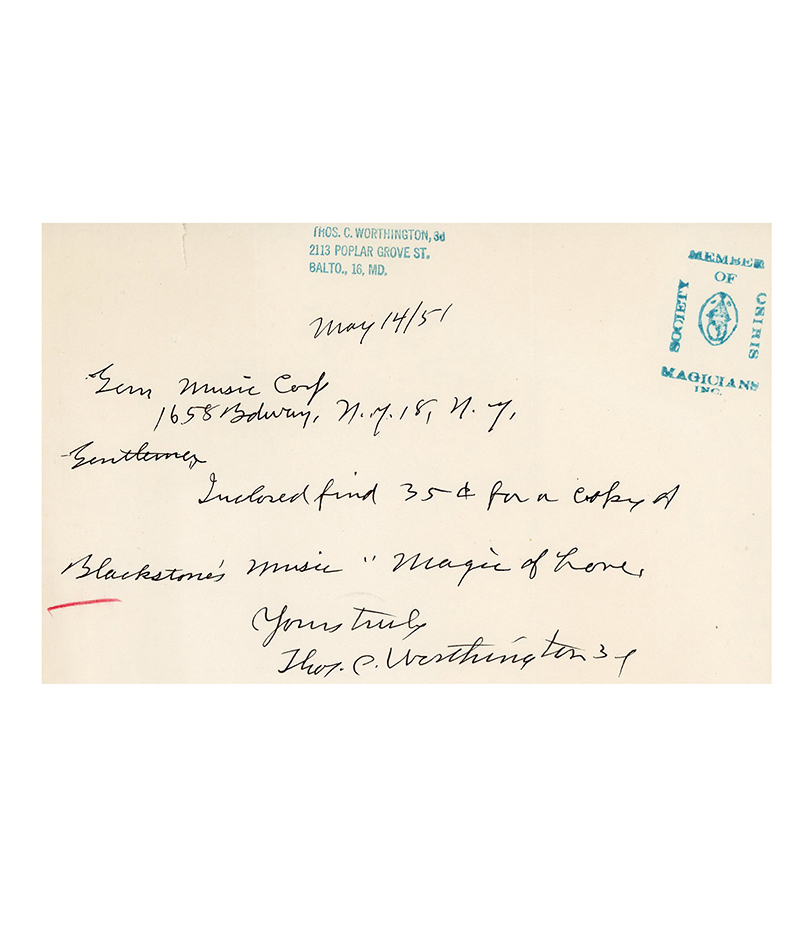 THOS. C. WORTHINGTON, 3d
2113 POPLAR GROVE ST.
BALTO., 16, MD.
MEMBER
OF
SOCIETY
OSIRIS
MAGICIANS
INC.
May 14/51
Gem Music Corp
1658 Bdway, N.Y. 18, N.Y.
Gentlemen
Inclosed find 35¢ for a copy of
Blackstone's Music " Magic of Love.
Yours truly
Thos. C. Worthington 3d